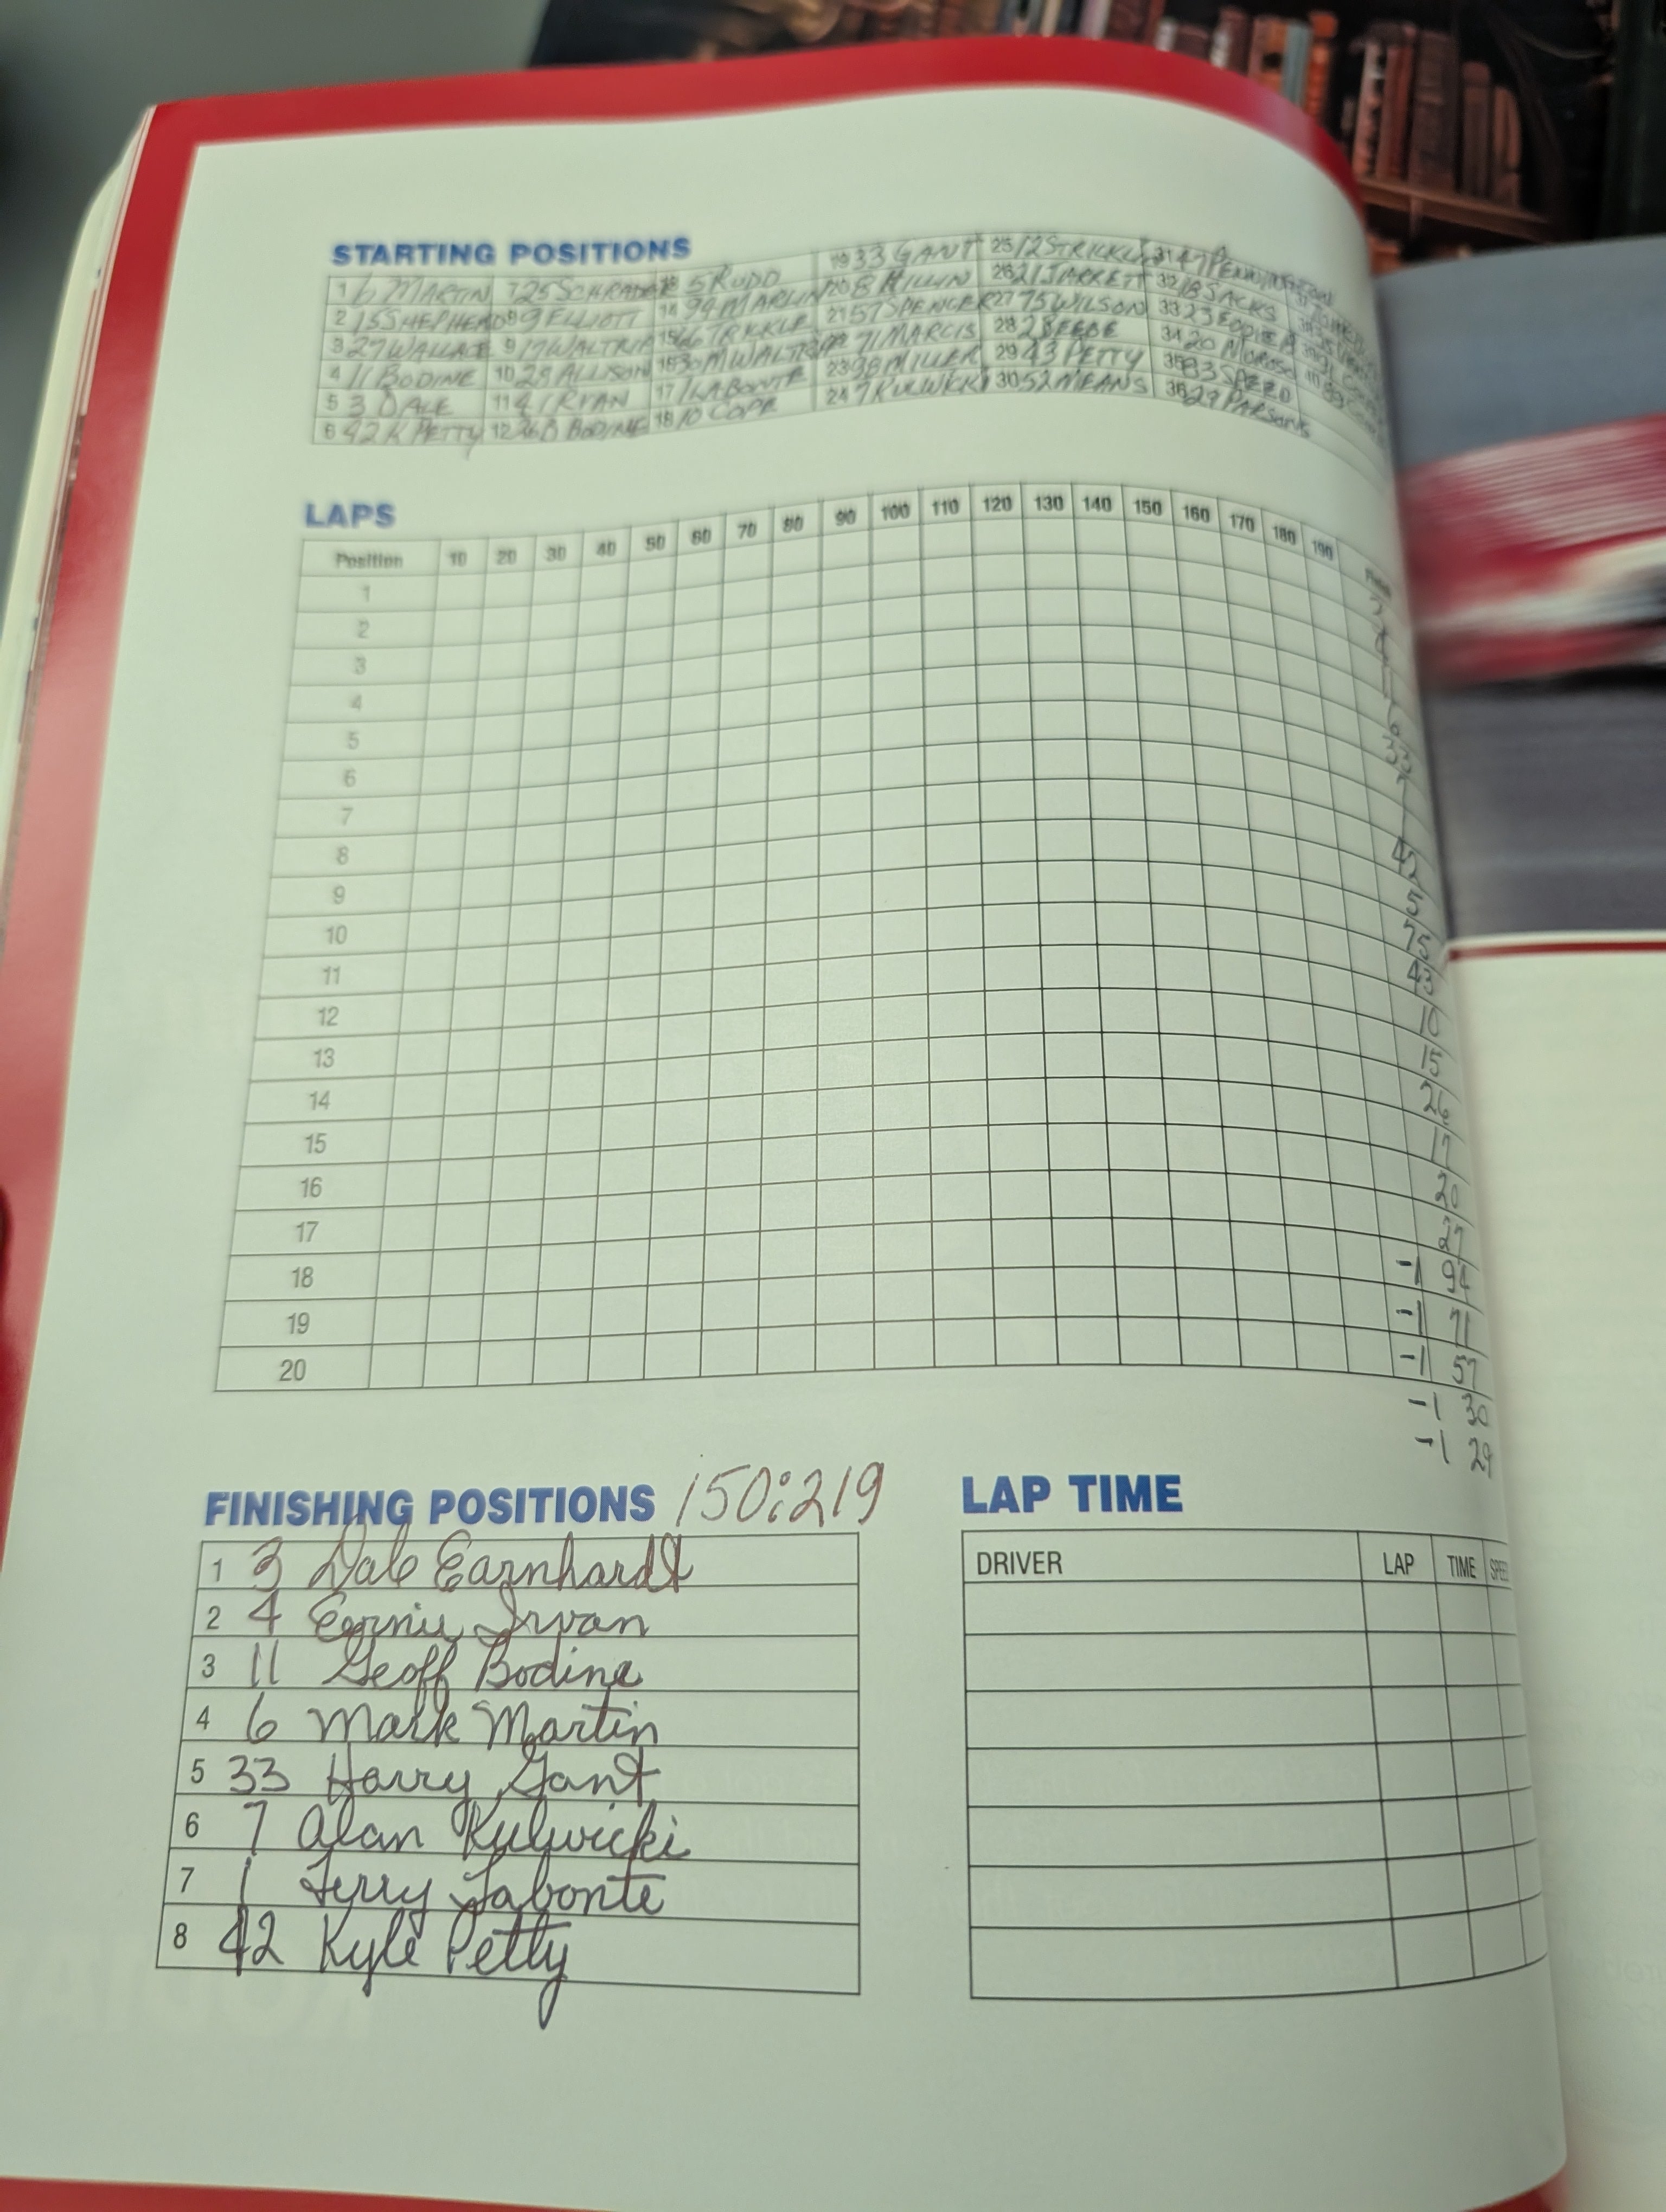 STARTING POSITIONS
1 6 MARTIN 7 25 SCHRADER 5 RUDD 33 GANT 25 12 STRICKLIN 31 47
2 15 SHEPHERD 8 9 ELLIOTT 14 94 MARLIN 20 8 HILLIN 26 21 JARRETT 32 18 SACKS
3 27 WALLACE 9 17 WALTRIP 15 66 TRICKLE 21 57 SPENCER 27 75 WILSON 33 23 EDDIE
4 11 BODINE 10 28 ALLISON 16 30 M WALTRIP 71 MARCIS 28 2 34 20 MOROSO
5 3 DALE 11 4 IRVAN 17 1 LABONTE 23 98 MILLER 29 43 PETTY 35 83 SPEED
6 42 K PETTY 12 26 B BODINE 18 10 COPE 24 7 KULWICKI 30 52 MEANS 36 29 PARSONS
LAPS
Position 10 20 30 40 50 60 70 80 90 100 110 120 130 140 150 160 170 180 190
1
2
3
4
5 6
6 33
7 7
8 1
9 42
10 5
11 75
12 43
13 10
14 15
15 26
16 17
17 20
18 27
19 -1 94
20 -1 71
-1 57
-1 30
-1 29
FINISHING POSITIONS 150:219
1 3 Dale Earnhardt
2 4 Ernie Irvan
3 11 Geoff Bodine
4 6 Mark Martin
5 33 Harry Gant
6 7 Alan Kulwicki
7 1 Terry Labonte
8 42 Kyle Petty
LAP TIME
DRIVER LAP TIME